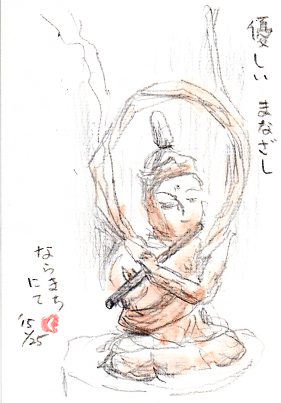 優しい まなざし
ならまち
にて
'15
1/25